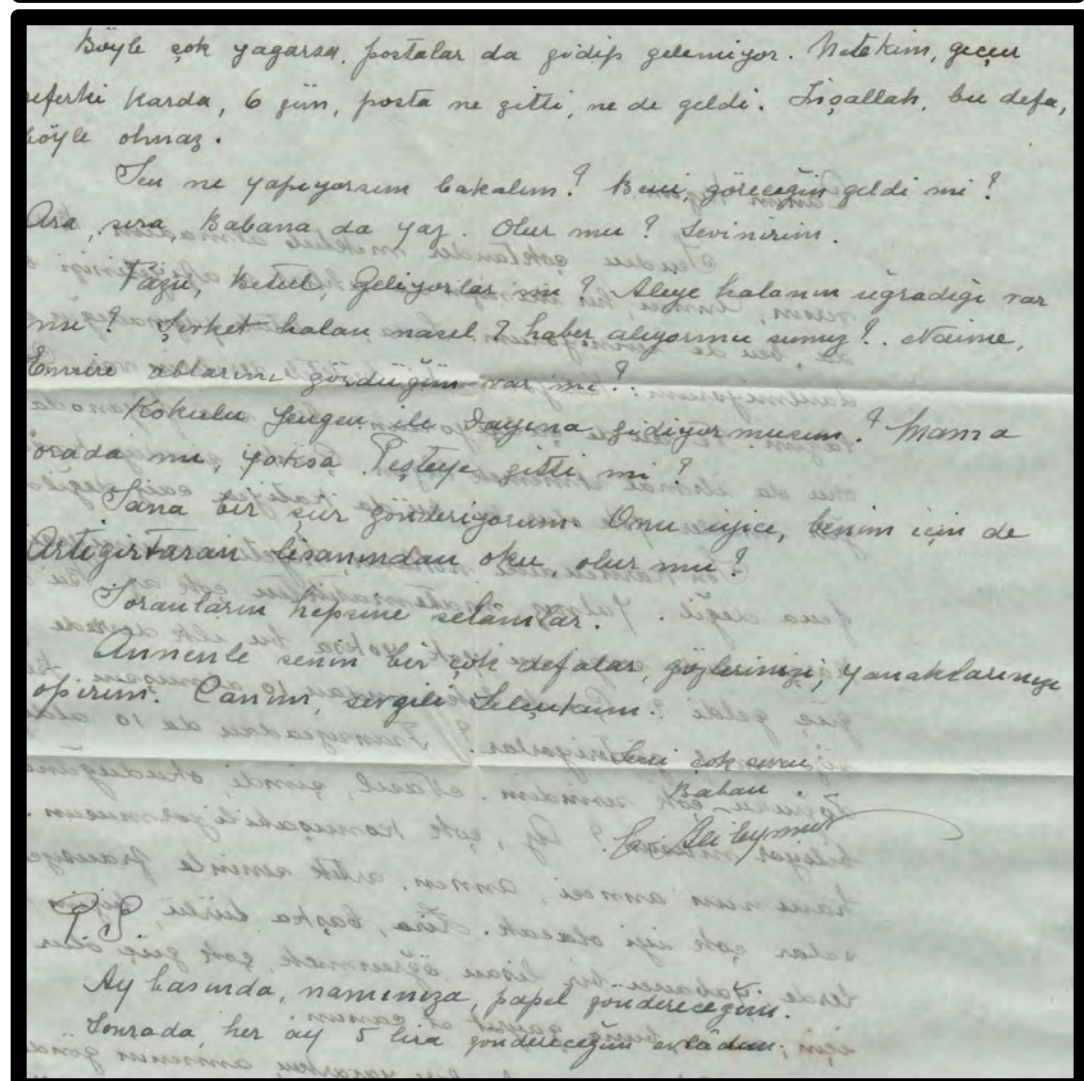 Böyle çok yagarsa, postalar da gidip gelemiyor. Netekim, geçen
seferki karda, 6 gün, posta ne gitti, ne de geldi. İnşallah, bu defa,
böyle olmaz.
Sen ne yapıyorsun bakalım? Beni, göreceğin geldi mi?
Ara, sıra, Babana da yaz. Olur mu? Sevinirim.
Betül, Geliyorlar mı? Aliye halanın uğradığı var
mı? Şevket halan nasıl? haber alıyormu sunuz?.. Naime,
Emire ablarını gördüğün var mı?
Kokulu Yengen ile Dayına gidiyormusun? Mama
orada mı, yoksa Peşteye gitti mi?
Sana bir şiir gönderiyorum. Onu iyice, benim için de
lisanından oku, olur mu?
Soranların hepsine selâmlar.
Annenle senin bir çok defalar, gözlerinizi, yanaklarınızı
öperim. Canım, sevgili Selçukum.
Seni çok seven
Baban
PS
Ay basında, namınıza, papel göndereceğim.
Sonrada, her ay 5 lira göndereceğim evlâdım.